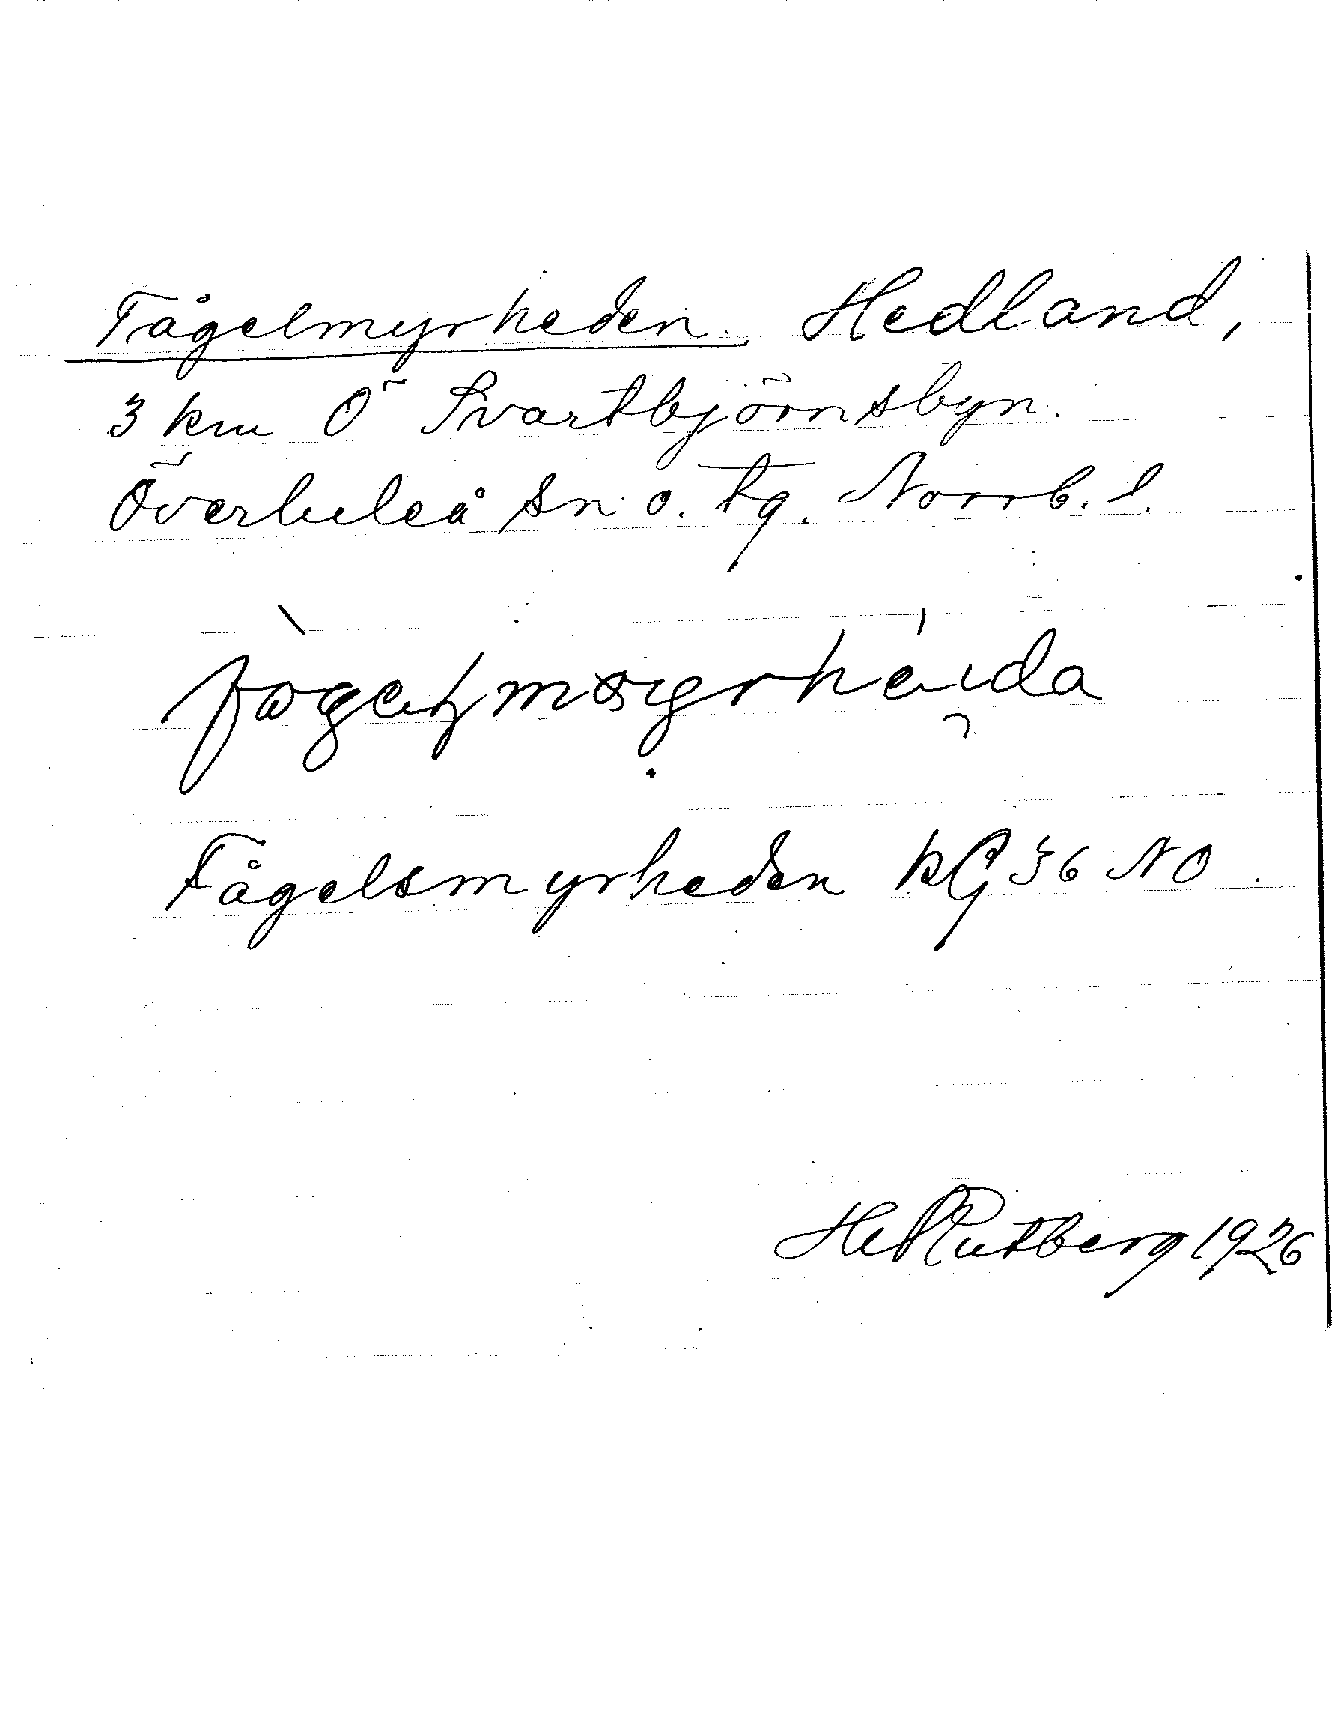 Fågelmyrheden. Hedland,
3 km Ö Svartbjörnsbyn.
Överluleå sn o. tg. Norrb. l.
Fågelsmyrheden kG 36 NO.
H. Rutberg 1926